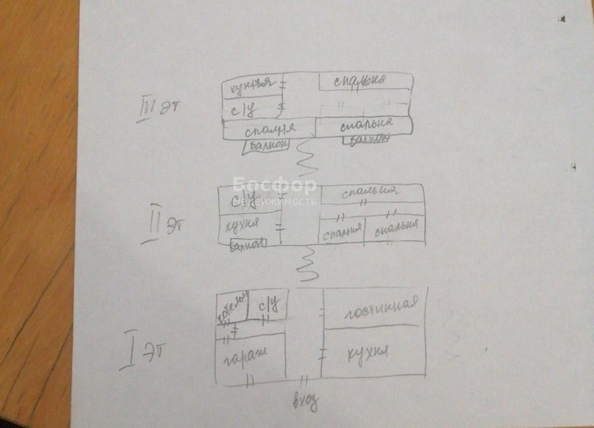 III эт
кухня
спальня
с/у
спальня
спальня
балкон
балкон
Босфор
недвижимость
II эт
с/у
спальня
кухня
спальня
спальня
балкон
I эт
с/у
гостинная
гараж
кухня
вход